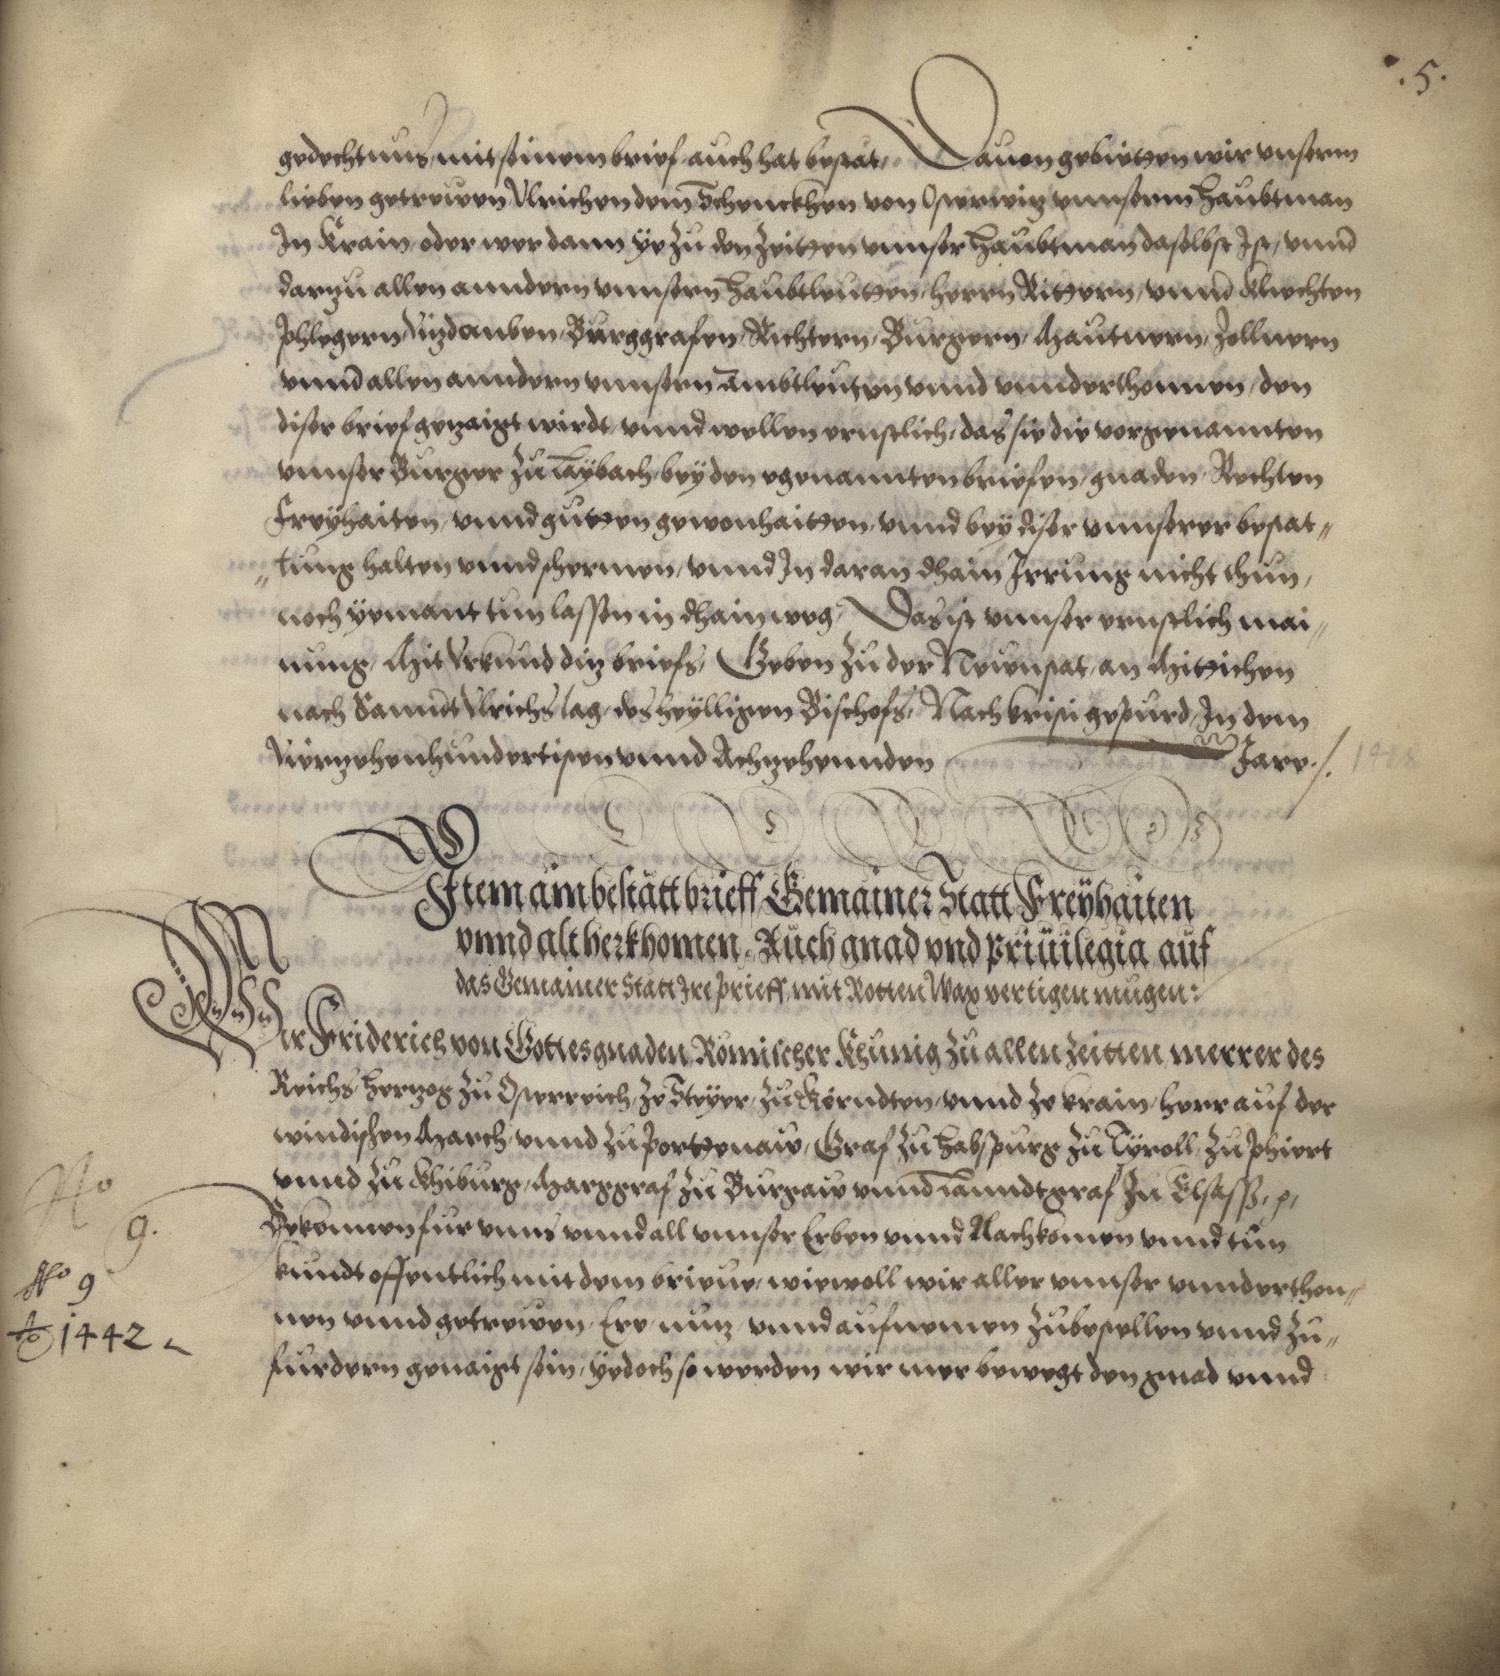 .5.
gedechtnus, mit seinem brief auch hat bestät, Dauon gebietten wir vnserm
lieben getrewen Vlrichen dem Schenckhen von Osterwitz vnnserm haubtman
In Krain, oder wer dann ye zu den Zeitten vnnser haubtman daselbst Ist, vnnd
darzu allen anndern vnnsern haubtleutten, herrn Rittern, vnnd Knechten
Phlegern, Vizdomben, Burggrafen, Richtern, Burgern, Mautnern, Zollnern
vnnd allen anndern vnnsern ambtleuten vnnd vnnderthonnen, den
diser brief gezaigt wirdt, vnnd wellen ernstlich, das sie die vorgenannten
vnnser Burger zu Laybach, bey den egenannten briefen, gnaden, Rechten
Freyhaiten, vnnd gutten gewonhaitten, vnnd bey diser vnnserer bestät„
„tung halten vnnd schermen, vnnd In daran khain Irrung nicht thun,
noch yemant tun lassen in khain weg, Das ist vnnser ernstlich mai„
nung, Mit Vrkund ditz briefs, Geben zu der Newenstat, an Mittichen
nach Sannd Vlrichs tag, des heylligen Bischofs, Nach kristi gepurd, In dem
Vierzehenhundertisten vnnd Achzehennden Jare ./.
1418
Item ain bestätt brieff Gemainer Statt Freyhaiten
vnnd alt herkhomen, Auch gnad vnd priuilegia auf
das Gemainer Statt Ire prieff mit Rotten Wax vertigen mugen:
Wir Friderich von Gottes gnaden Römischer Khunig zu allen Zeitten merrer des
Reichs, hertzog zu Osterreich, ze Steyer, zu Kerndten, vnnd ze krain, herr auf der
windischen March, vnnd zu Porttenaw, Graf zu habspurg zu Tyroll, zu Phiert
vnnd zu Khiburg, Marggraf zu Burgaw vnnd Lanndtgraf In Elsass, p,
Bekennen fur vnns vnnd all vnnser Erben vnnd Nachkomen vnnd tun
kundt offentlich mit dem brieue, wiewoll wir aller vnnser vnnderthon„
nen vnnd getrewen, Ere, nutz, vnnd aufnemen zubestellen vnnd zu„
furdern genaigt sein, yedoch so werden wir mer bewegt den gnad vnnd
No
9.
No 9
Ao 1442